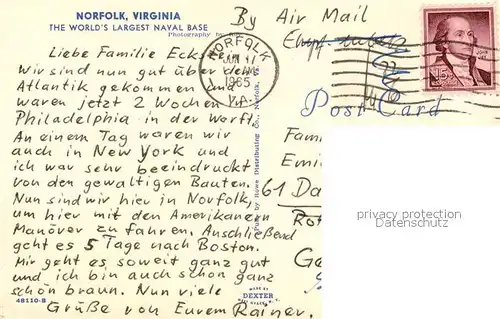 NORFOLK, VIRGINIA
THE WORLD'S LARGEST NAVAL BASE
Photography by
By Air Mail
NORFOLK
JUN 17
1965
VA.
15¢
Post Card
Liebe Familie
Wir sind nun gut über den
Atlantik gekommen und
waren jetzt 2 Wochen
Philadelphia in der Werft.
An einem Tag waren wir
auch in New York und
ich war sehr beeindruckt
von den gewaltigen Bauten.
Nun sind wir hier in Norfolk,
um hier mit den Amerikanern
Manöver zu fahren. Anschließend
geht es 5 Tage nach Boston.
Mir geht es soweit ganz gut
und ich bin auch schon ganz
schön braun. Nun viele
Grüße von Eurem Rainer.
48110-B
MADE BY
DEXTER
WEST NYACK, N.Y.
Pub. by Rowe Distributing Co., Norfolk, Va.
Fam
Emi
61 Da
Ro
Ge
privacy protection
Datenschutz